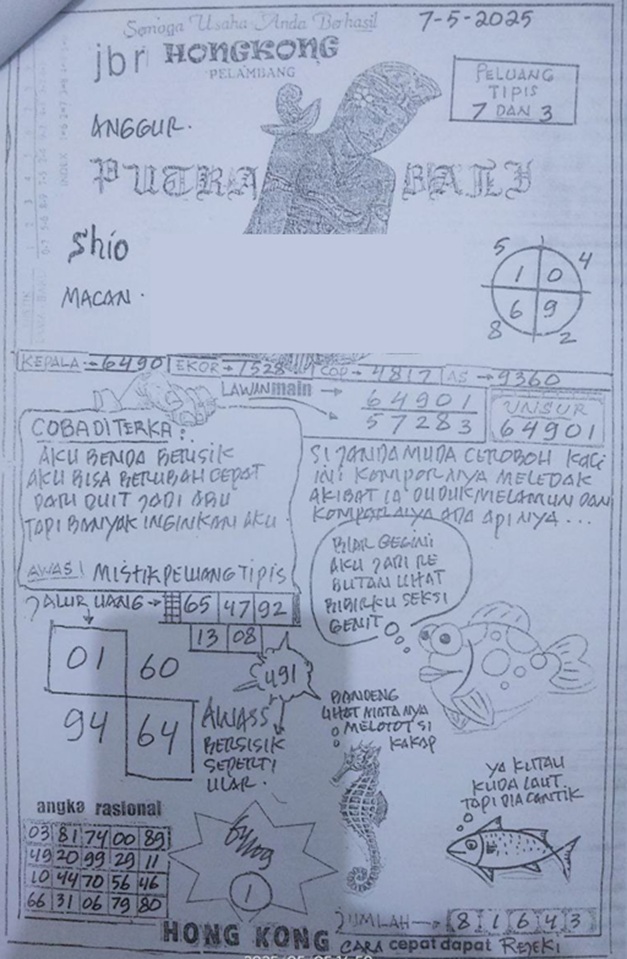 Semoga Usaha Anda Berhasil
7-5-2025
jbr HONGKONG
PELAMBANG
PELUANG
TIPIS
7 DAN 3
ANGGUR.
PUTRA BALI
Shio
MACAN.
5 4
1 0
6 9
8 2
KEPALA → 6490 EKOR → 7528 COP → 4817 AS → 9360
LAWAN main →
64901
57283
UNSUR
64901
COBA DITERKA:
AKU BENDA BERISIK
AKU BISA BERUBAH CEPAT
DARI DUIT JADI ABU
TAPI BANYAK INGINKAN AKU
AWAS! MISTIK PELUANG TIPIS
SI JANDA MUDA CEROBOH KALI
INI KOMPORNYA MELEDAK
AKIBAT IA DUDUK MELAMUN DAN
KOMPORNYA ADA APINYA...
BIAR BEGINI
AKU JADI RE
BUTAN LIHAT
BIBIRKU SEKSI
GENIT
JALUR UANG → 65 47 92
13 08
01 60
94 64
491
AWASS
BERSISIK
SEPERTI
ULAR.
BANDENG
LIHAT MATANYA
MELOTOT SI
KAKAP
YA KUTAU
KUDA LAUT
TAPI DIA CANTIK
angka rasional
03 81 74 00 89
49 20 99 29 11
10 44 70 56 46
66 31 06 79 80
1
JUMLAH → 8 1 6 4 3
HONG KONG CARA cepat dapat REJEKI